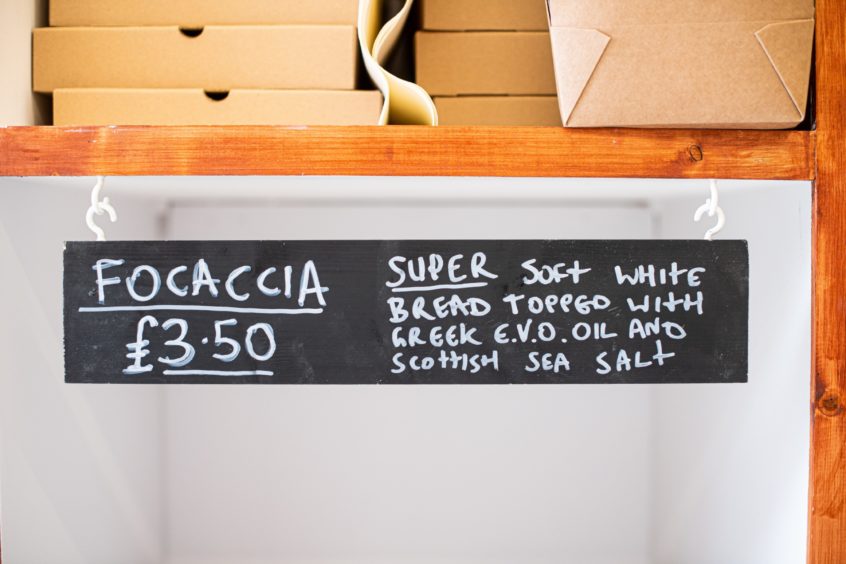 FOCACCIA
£3.50
SUPER SOFT WHITE
BREAD TOPPED WITH
GREEK E.V.O. OIL AND
SCOTTISH SEA SALT